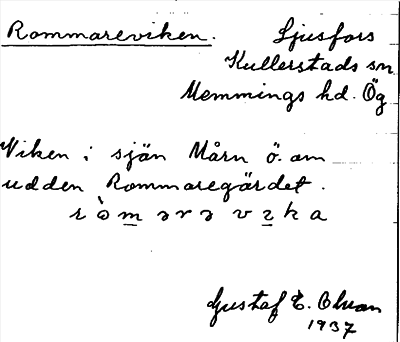 Rommareviken. Ljusfors
Kullerstads sn
Memmings hd. Ög
Viken i sjön Mårn ö. om
udden Rommaregärdet.
r ò m ə r ə v ɪ k a
Gustaf E. Olson
1937